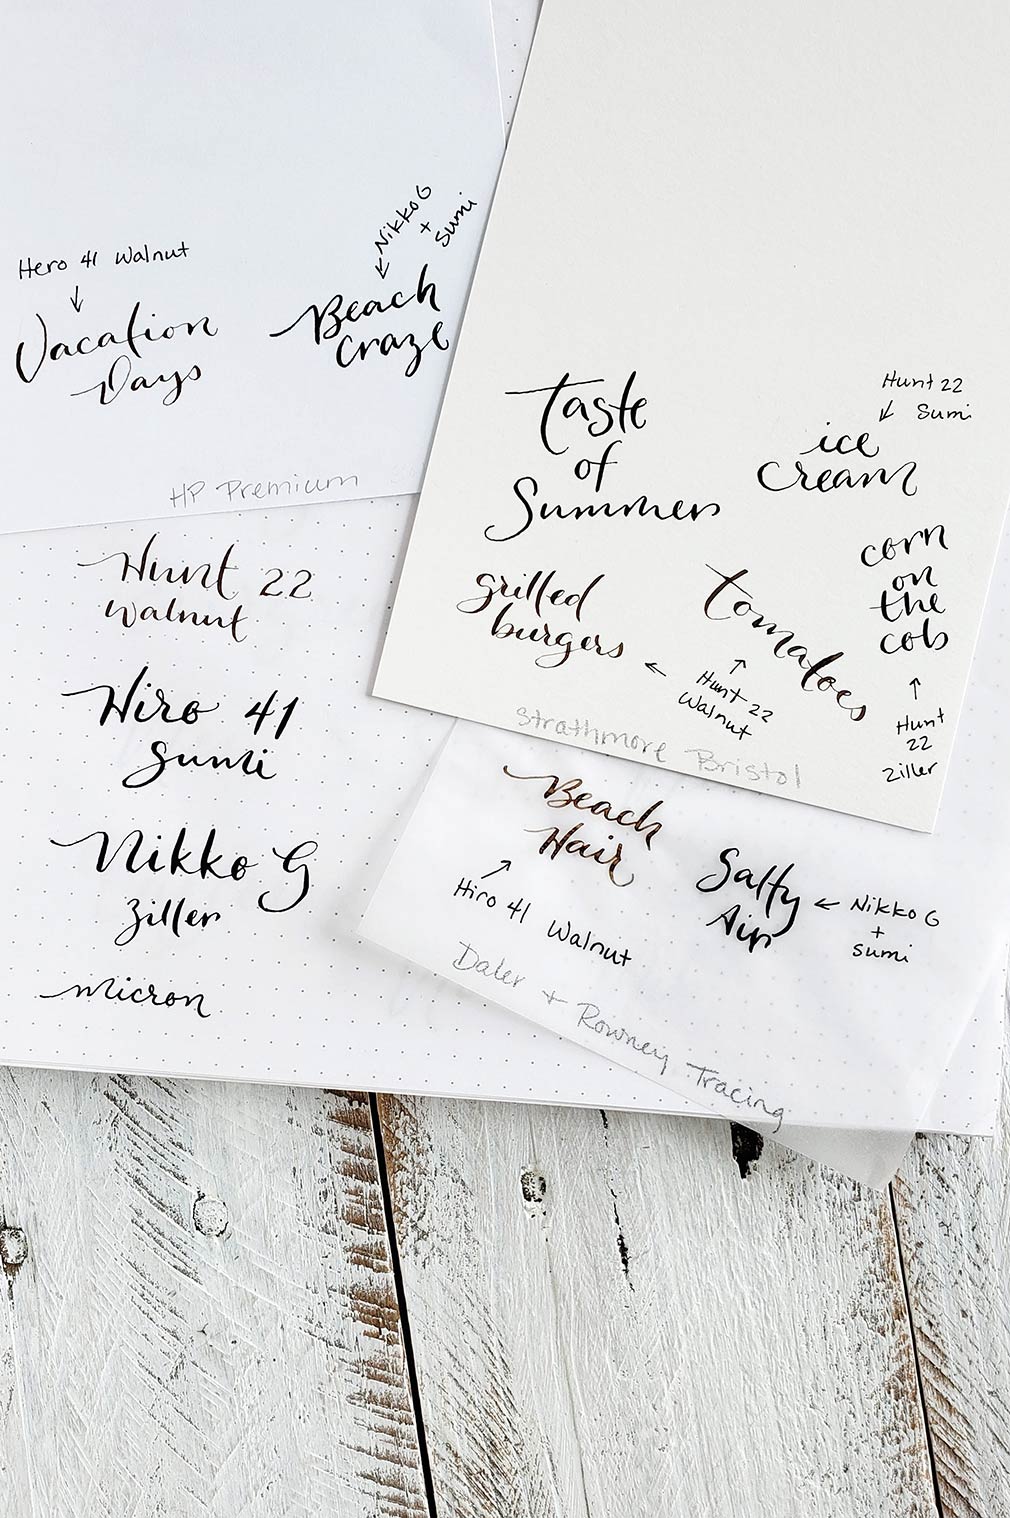 Hero 41 Walnut
↓
Vacation
Days
Nikko G
+
sumi
↙
Beach
Craze
HP Premium
Taste
of
Summer
Hunt 22
↙ Sumi
ice
cream
grilled
burgers
tomatoes
← ↑
Hunt 22
Walnut
corn
on
the
cob
↑
Hunt
22
Ziller
Strathmore Bristol
Hunt 22
Walnut
Hiro 41
Sumi
Nikko G
Ziller
micron
Beach
Hair
↗
Hiro 41 Walnut
Salty
Air
← Nikko G
+
sumi
Daler + Rowney Tracing